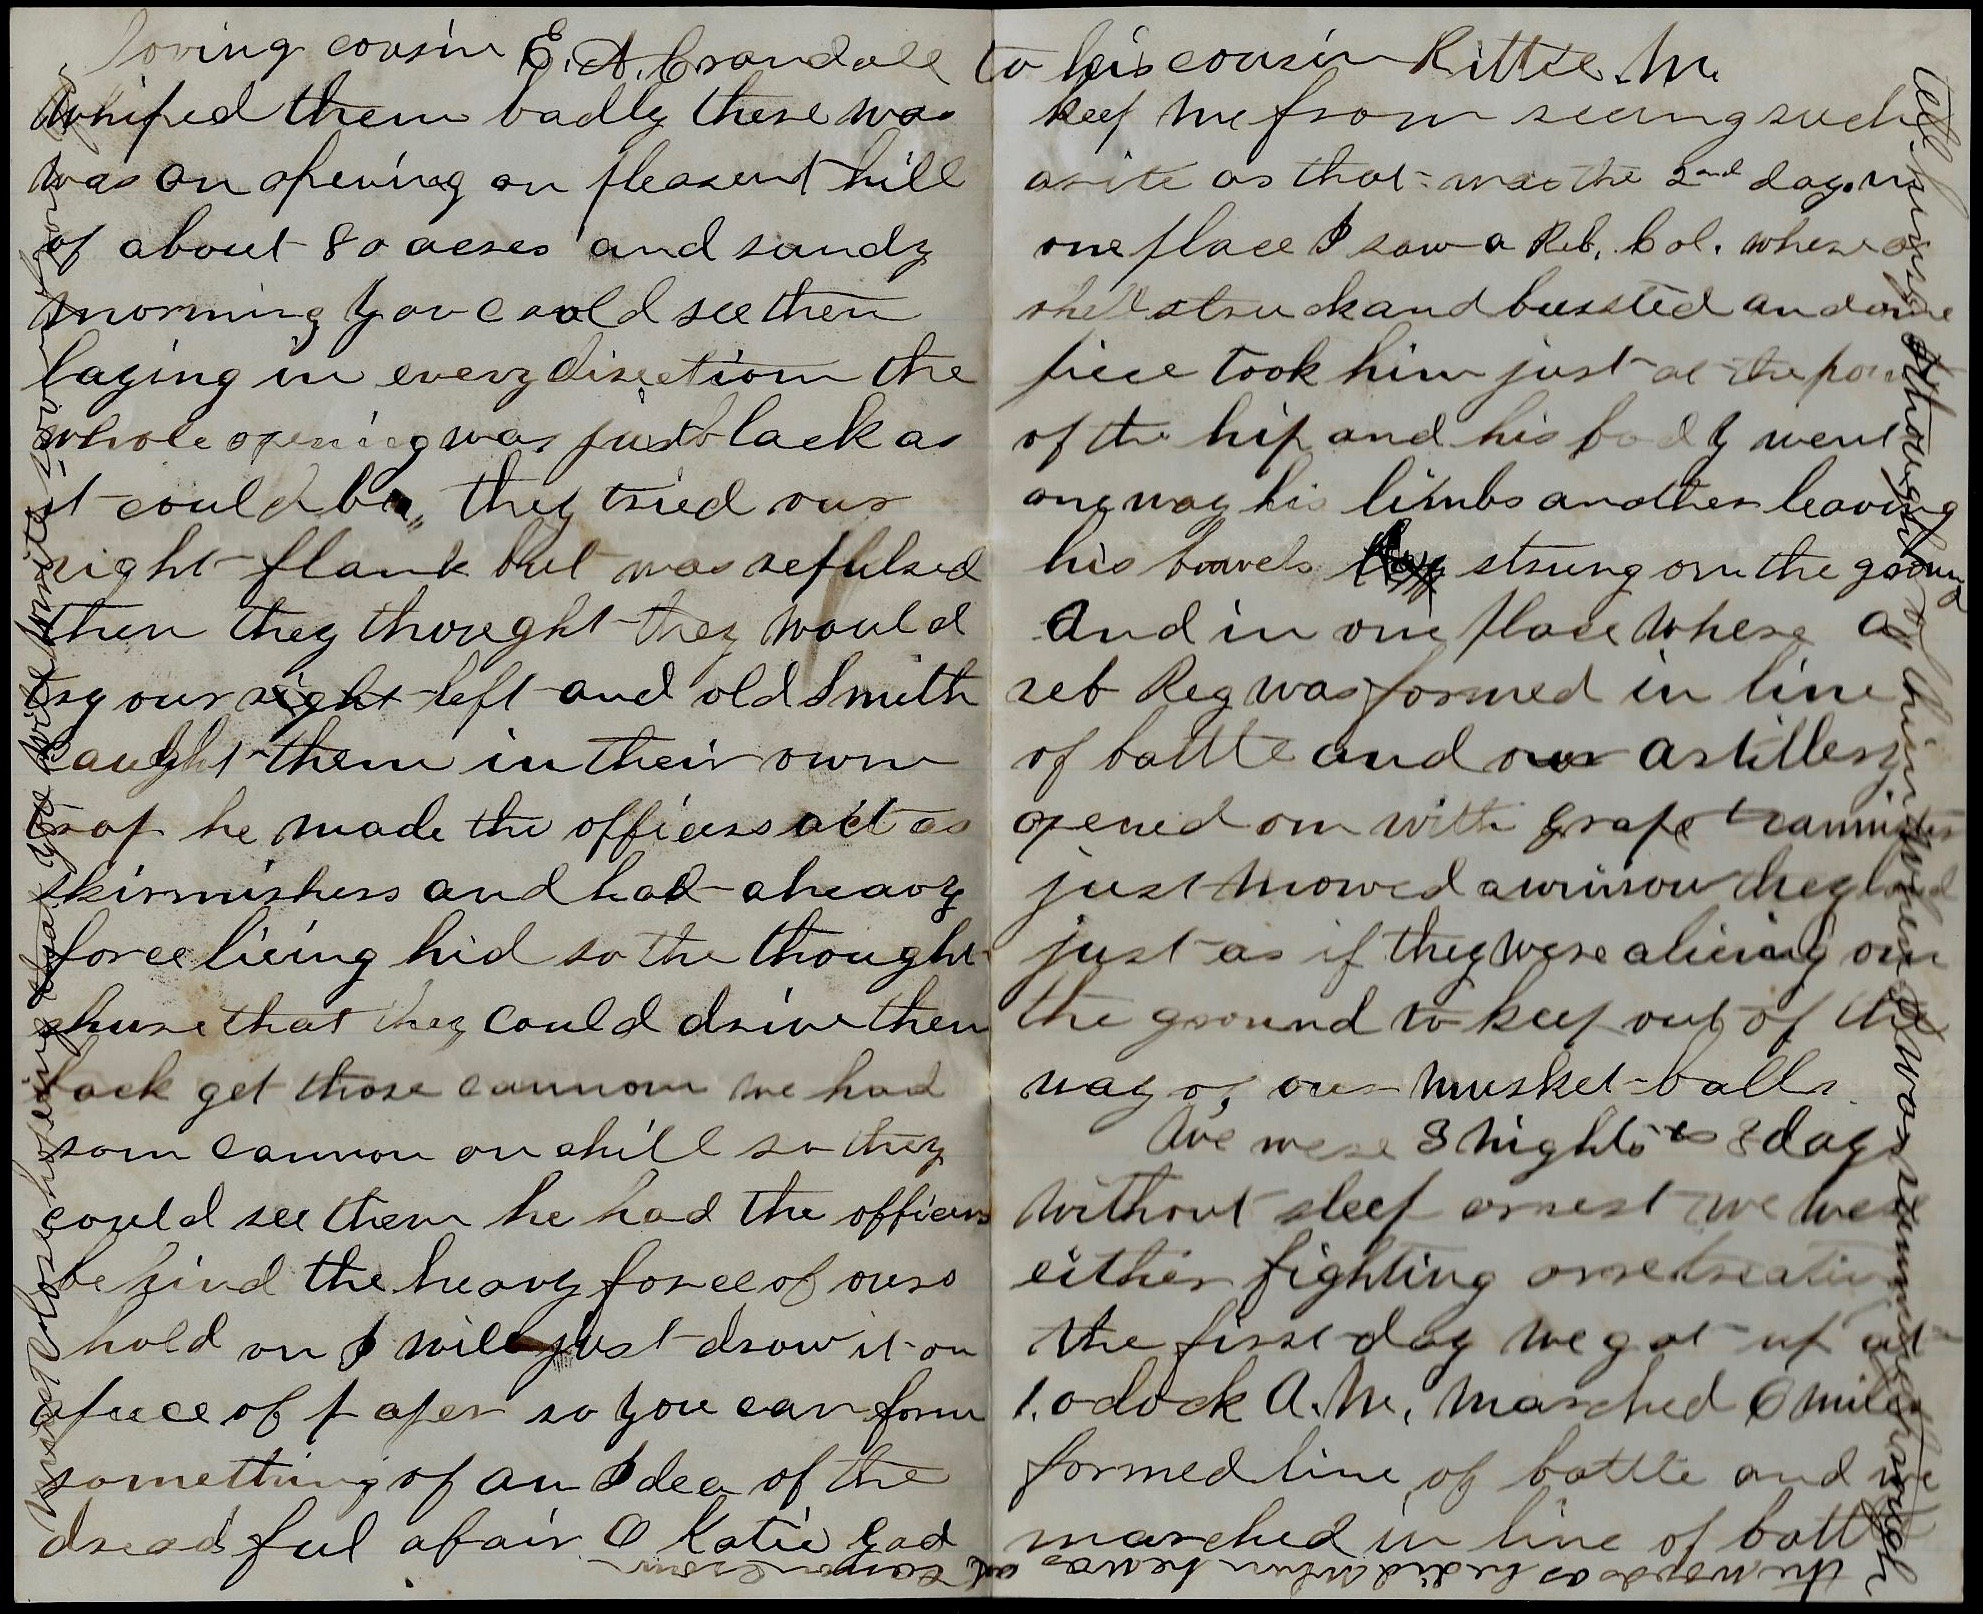 loving cousin E. A. Crandall to his cousin Kittie M.
whiped them badly there was
was an opening on pleasent hill
of about 80 acres and sundy
morning you could see then
laying in every direction the
whole opening was just black as
it could be, they tried our
right flank but was repulsed
then they thought they would
try our right left and old Smith
caught them in their own
trap he made the officers act as
skirmishers and had a heavy
force lieing hid so the thought
shure that they could drive them
back get those cannon we had
som cannon on a hill so they
could see them he had the officers
behind the heavy force of ours
hold on I will just draw it on
a piece of paper so you can form
something of an Idea of the
dreadful afair O Katie God
keep me from seeing such
a site as that was the 2nd day. in
one place I saw a Reb. Col. where a
shell struck and bursted and one
piece took him just at the
of the hip and his body went
one way his limbs another leaving
his bowels strung on the ground
and in one place where a
reb Reg was formed in line
of battle and our artillery
opened on with grape & cannister
just mowed a winrow they
just as if they were a lieing on
the ground to keep out of the
way of our musket balls.
We were 3 nights & 3 days
without sleep or rest we were
either fighting or retreating
the first day we got up at
1. o clock A.M. marched 6 miles
formed line of battle and we
marched in line of battle
must close hopeing that you will write soon
Tell him I thought of him when he was running through
the woods as he did when he was
at